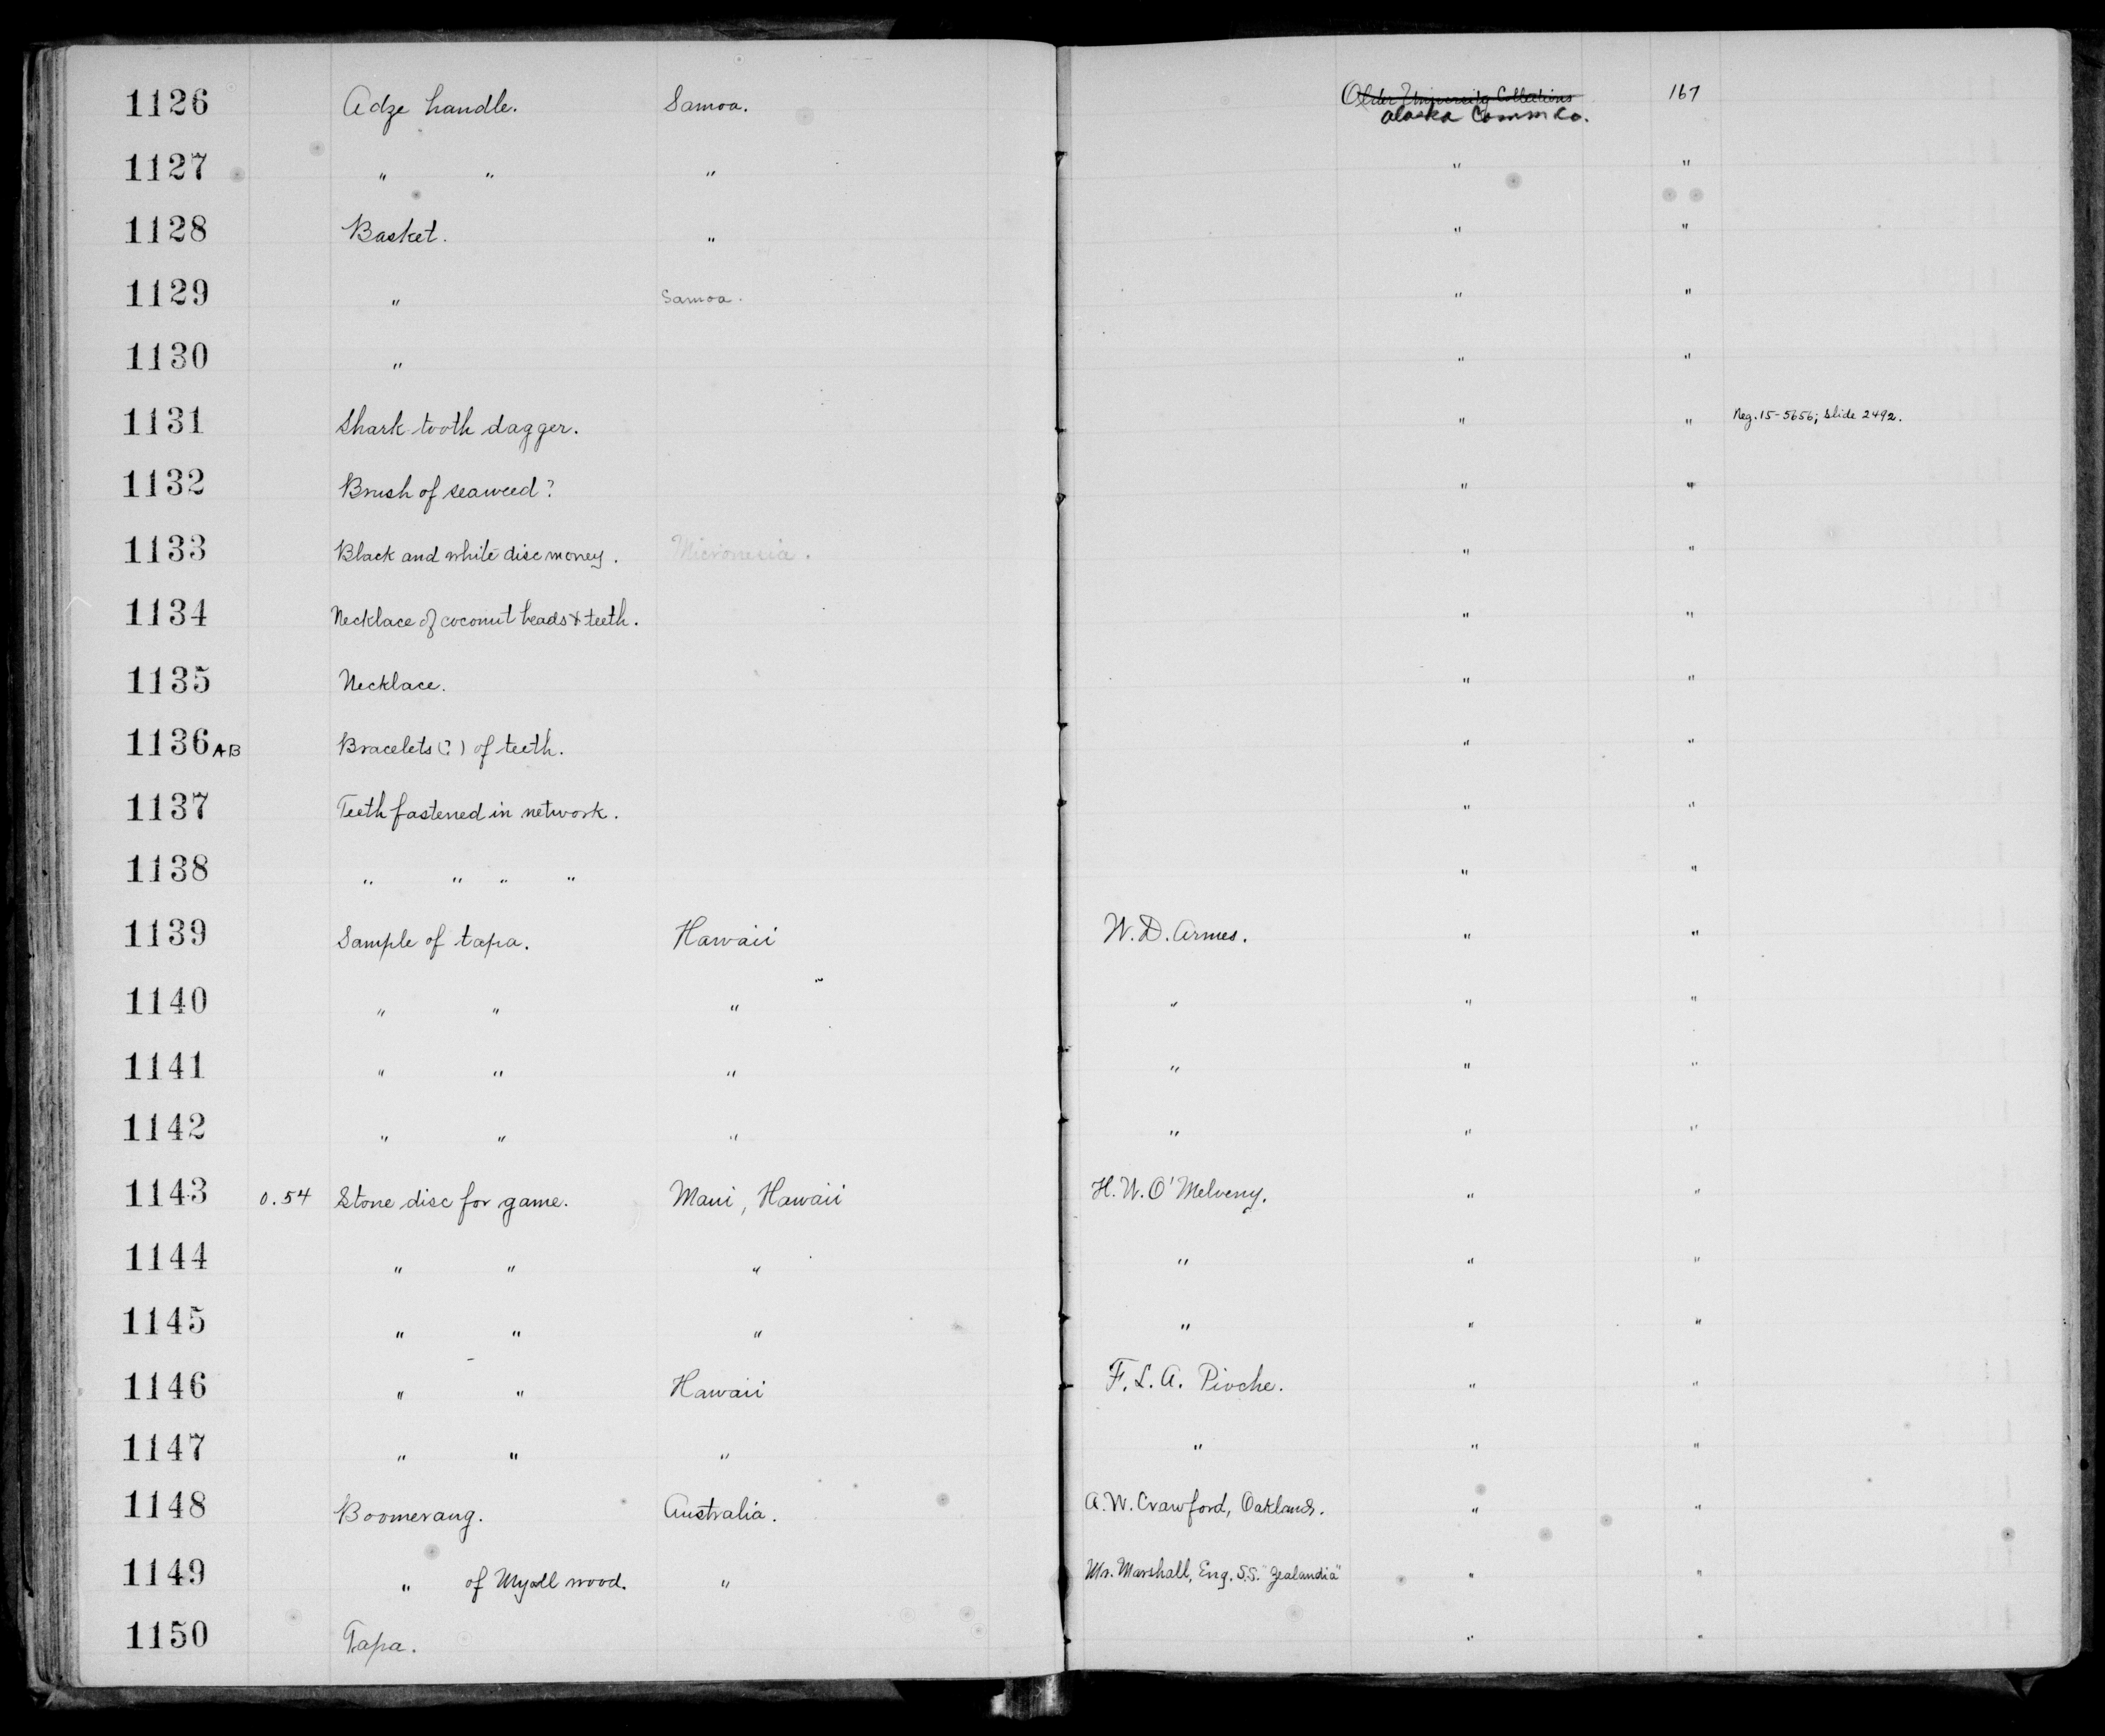 1126 Adze handle. Samoa. Older University Collections 167
Alaska Comm Co.
1127 " " " " "
1128 Basket. " " "
1129 " Samoa. " "
1130 " " "
1131 Shark tooth dagger. " " Neg. 15-5656; Slide 2492.
1132 Brush of seaweed? " "
1133 Black and white disc money. Micronesia. " "
1134 Necklace of coconut beads & teeth. " "
1135 Necklace. " "
1136 AB Bracelets (?) of teeth. " "
1137 Teeth fastened in network. " "
1138 " " " " " "
1139 Sample of tapa. Hawaii W. D. Armes. " "
1140 " " " " " "
1141 " " " " " "
1142 " " " " " "
1143 0.54 Stone disc for game. Maui, Hawaii H. W. O'Melveny. " "
1144 " " " " " "
1145 " " " " " "
1146 " " Hawaii F. L. A. Pioche. " "
1147 " " " " " "
1148 Boomerang. Australia. A. W. Crawford, Oakland. " "
1149 " of Myall wood. " Mr. Marshall, Eng. S.S. "Zealandia" " "
1150 Tapa. " "